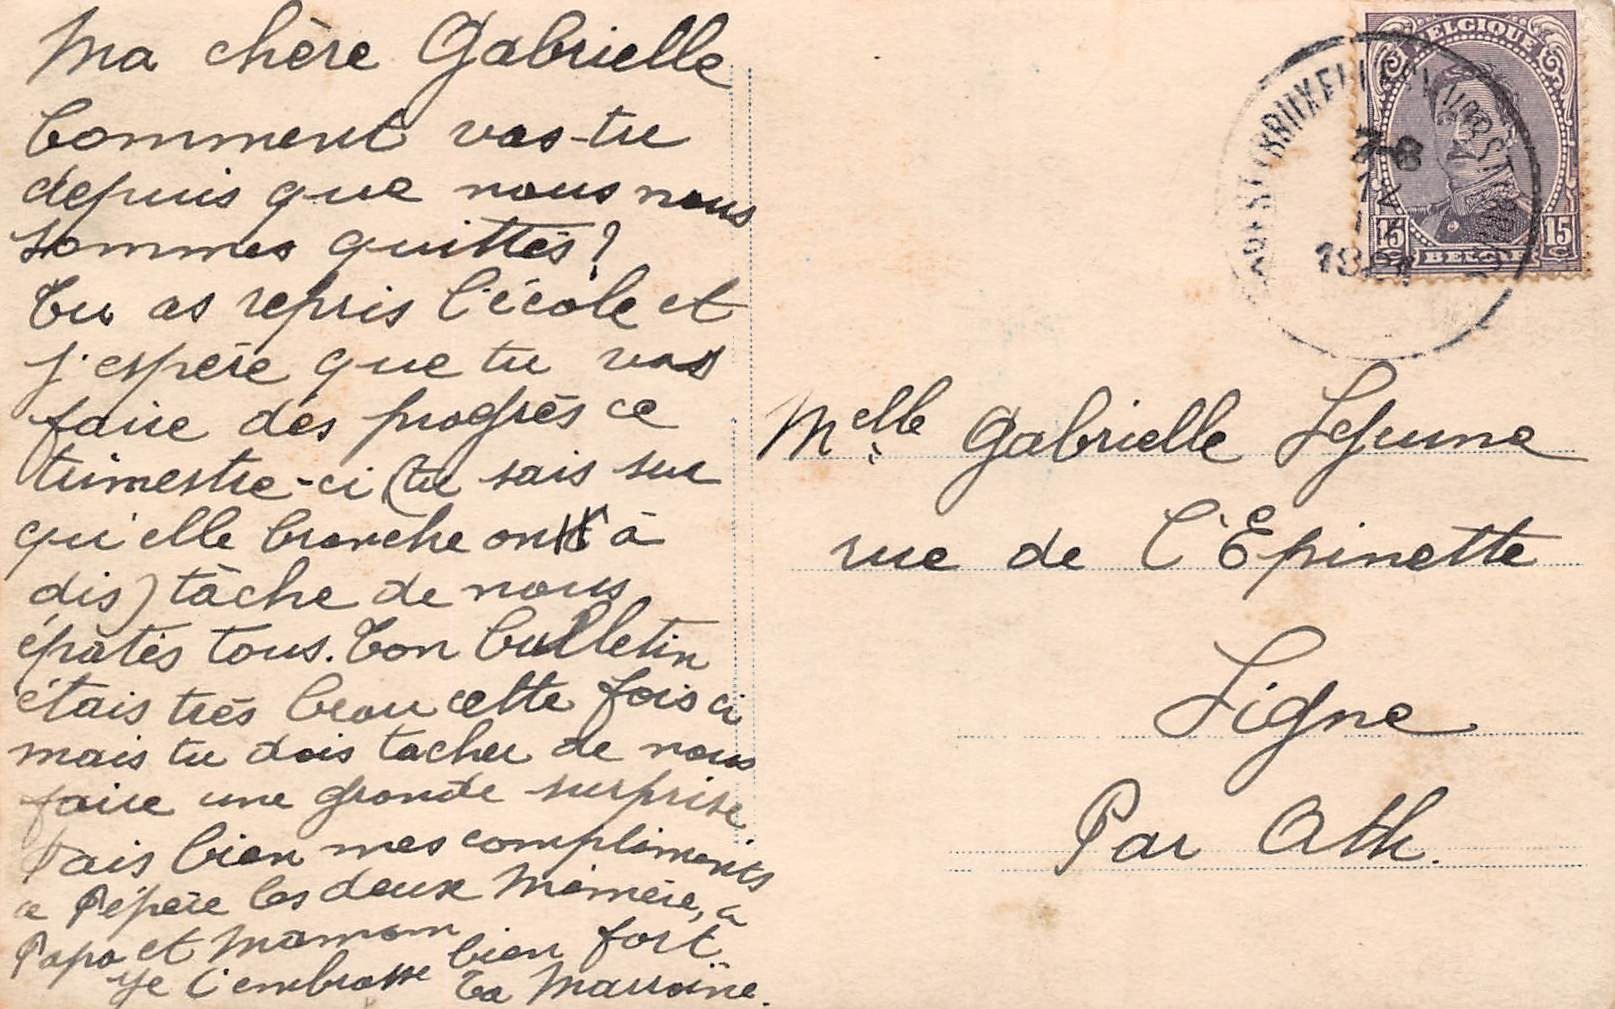 Ma chère Gabrielle
Comment vas-tu
depuis que nous nous
sommes quittés?
Tu as repris l'école et
j'espère que tu vas
faire des progrès ce
trimestre-ci (tu sais sur
qu'elle branche on à
dis) tâche de nous
épatés tous. Ton bulletin
étais très beau cette fois ci
mais tu dois tacher de nous
faire une grande surprise
Fais bien mes compliments
a Pépère les deux Mémère, a
Papa et Maman bien fort
Je t'embrasse Ta Marraine.
BELGIQUE
15 c 15 c
BELGIË
BRUXELLES
Melle Gabrielle Lejeune
rue de l'Epinette
Ligne
Par Ath.